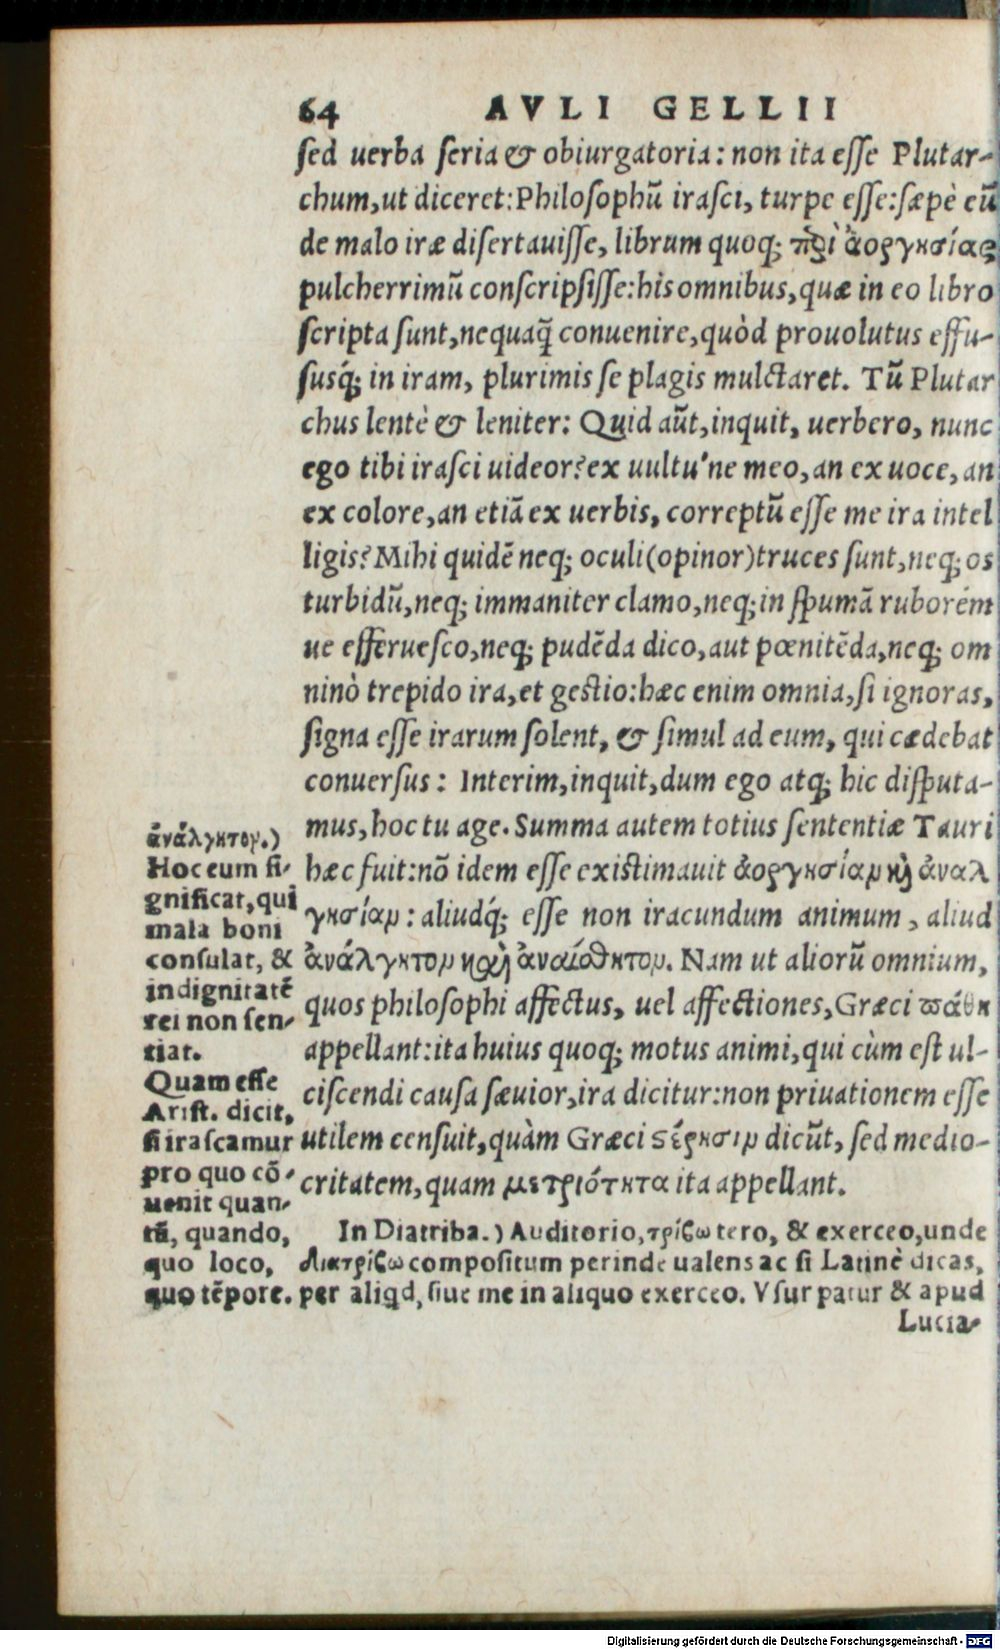 64 AVLI GELLII
sed uerba seria & obiurgatoria: non ita esse Plutar-
chum, ut diceret: Philosophũ irasci, turpe esse: sæpè eũ
de malo iræ disertauisse, librum quoq; πε͂ρὶ ἀοργησίας
pulcherrimũ conscripsisse: his omnibus, quæ in eo libro
scripta sunt, nequaq̃ conuenire, quòd prouolutus effu-
susq́; in iram, plurimis se plagis mulctaret. Tũ Plutar
chus lentè & leniter: Quid aũt, inquit, uerbero, nunc
ego tibi irasci uideor? ex uultu'ne meo, an ex uoce, an
ex colore, an etiã ex uerbis, correptũ esse me ira intel
ligis? Mihi quidẽ neq; oculi (opinor) truces sunt, neq; os
turbidũ, neq; immaniter clamo, neq; in spumã ruborém
ue efferuesco, neq; pudẽda dico, aut pœnitẽda, neq; om
ninò trepido ira, et gestio: hæc enim omnia, si ignoras,
signa esse irarum solent, & simul ad eum, qui cædebat
conuersus: Interim, inquit, dum ego atq; hic disputa-
mus, hoc tu age. Summa autem totius sententiæ Tauri
hæc fuit: nõ idem esse existimauit ἀοργησίαν καὶ ἀναλ
γησίαν: aliudq́; esse non iracundum animum, aliud
ἀνάλγητον καὶ ἀναίσθητον. Nam ut aliorũ omnium,
quos philosophi affectus, uel affectiones, Græci πάθη
appellant: ita huius quoq; motus animi, qui cùm est ul-
ciscendi causa sæuior, ira dicitur: non priuationem esse
utilem censuit, quàm Græci στέρησιν dicũt, sed medio-
critatem, quam μετριότητα ita appellant.
ἀνάλγητον.)
Hoc eum si-
gnificat, qui
mala boni
consulat, &
indignitatẽ
rei non sen-
tiat.
Quam esse
Arist. dicit,
si irascamur
pro quo cõ-
uenit quan-
tũ, quando,
quo loco,
quo tẽpore.
In Diatriba.) Auditorio, τρίβω tero, & exerceo, unde
διατρίβω compositum perinde ualens ac si Latinè dicas,
per aliqd, siue me in aliquo exerceo. Vsurpatur & apud
Lucia-
Digitalisierung gefördert durch die Deutsche Forschungsgemeinschaft - DFG